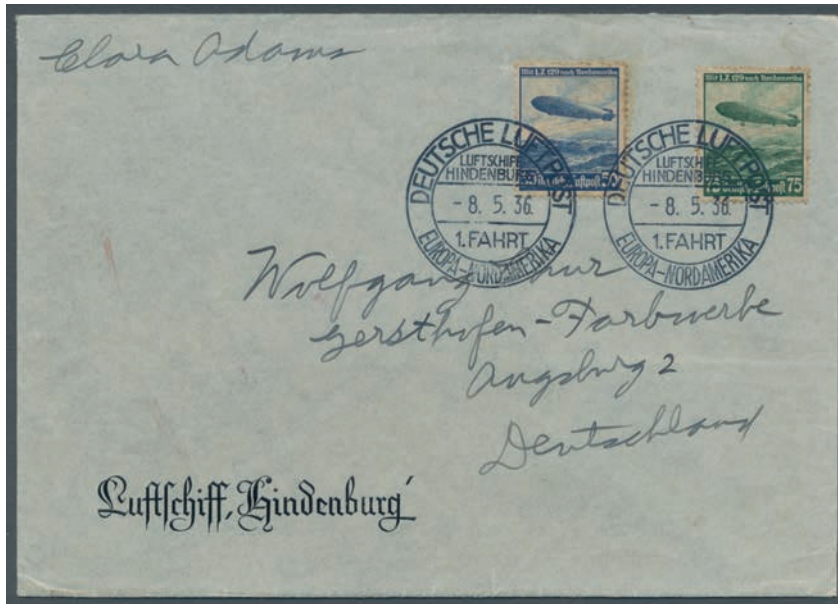 Clara Adams
Mit L.Z. 129 nach Nordamerika
Mit L.Z. 129 nach Nordamerika
50 Deutsche Luftpost 50
75 Deutsche Luftpost 75
DEUTSCHE LUFTPOST
LUFTSCHIFF
HINDENBURG
- 8. 5. 36.
1. FAHRT
EUROPA-NORDAMERIKA
DEUTSCHE LUFTPOST
LUFTSCHIFF
HINDENBURG
- 8. 5. 36.
1. FAHRT
EUROPA-NORDAMERIKA
Wolfgang
Gersthofen-Farbwerke
Augsburg 2
Deutschland
Luftschiff „Hindenburg“